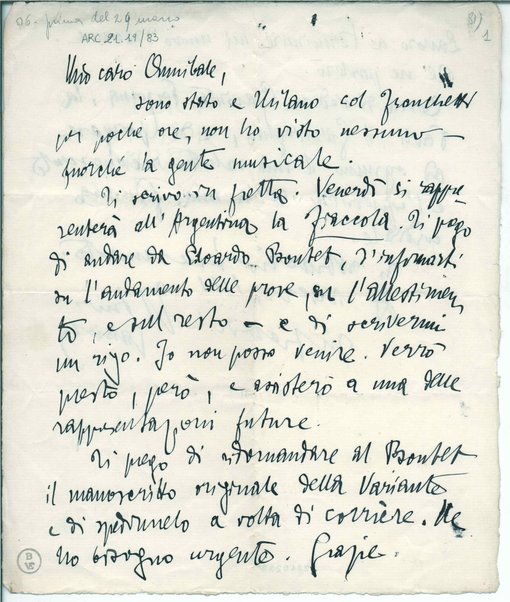 06 - prima del 29 marzo
ARC 21.19/83
1
Mio caro Annibale,
sono stato e Milano col Franchetti
per poche ore, non ho visto nessuno –
fuorché la gente musicale.
Ti scrivo in fretta. Venerdì si rappre-
senterà all'Argentina la Fiaccola. Ti prego
di andare da Edoardo Boutet, d'informarti
su l'andamento delle prove, su l'allestimen-
to, e sul resto – e di scrivermi
un rigo. Io non posso venire. Verrò
presto, però, e assisterò a una delle
rappresentazioni future.
Ti prego di ridomandare al Boutet
il manoscritto originale della Variante
e di spedirmelo a volta di corrière. Ne
ho bisogno urgente. Grazie.
B
VE